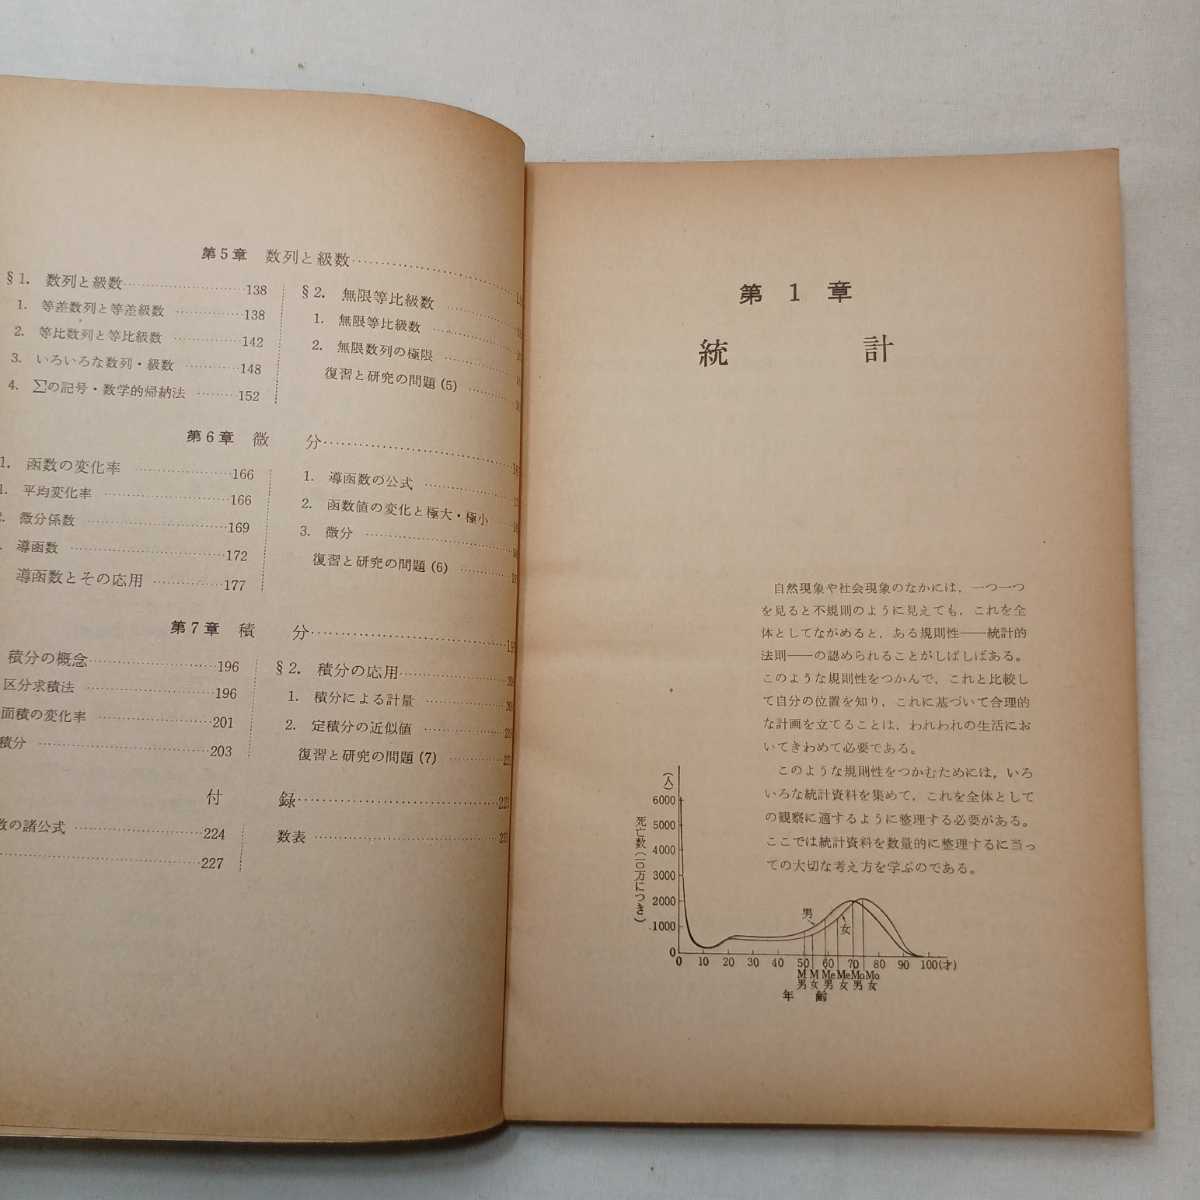 第5章 数列と級数
§1. 数列と級数 138
1. 等差数列と等差級数 138
2. 等比数列と等比級数 142
3. いろいろな数列・級数 148
4. Σの記号・数学的帰納法 152
§2. 無限等比級数
1. 無限等比級数
2. 無限数列の極限
復習と研究の問題(5)
第6章 微 分
1. 函数の変化率 166
平均変化率 166
微分係数 169
導函数 172
導函数とその応用 177
1. 導函数の公式
2. 函数値の変化と極大・極小
3. 微分
復習と研究の問題(6)
第7章 積 分
積分の概念 196
区分求積法 196
面積の変化率 201
積分 203
§2. 積分の応用
1. 積分による計量
2. 定積分の近似値
復習と研究の問題(7)
付 録
数の諸公式 224
227
数表
第 1 章
統 計
自然現象や社会現象のなかには，一つ一つ
を見ると不規則のように見えても，これを全
体としてながめると，ある規則性――統計的
法則――の認められることがしばしばある。
このような規則性をつかんで，これと比較し
て自分の位置を知り，これに基づいて合理的
な計画を立てることは，われわれの生活にお
いてきわめて必要である。
このような規則性をつかむためには，いろ
いろな統計資料を集めて，これを全体として
の観察に適するように整理する必要がある。
ここでは統計資料を数量的に整理するに当っ
ての大切な考え方を学ぶのである。
(人)
6000
5000
4000
3000
2000
1000
0
死亡数(一〇万につき)
男
女
0 10 20 30 40 50 60 70 80 90 100(才)
M M Me Me Mo Mo
男 女 男 女 男 女
年 齢